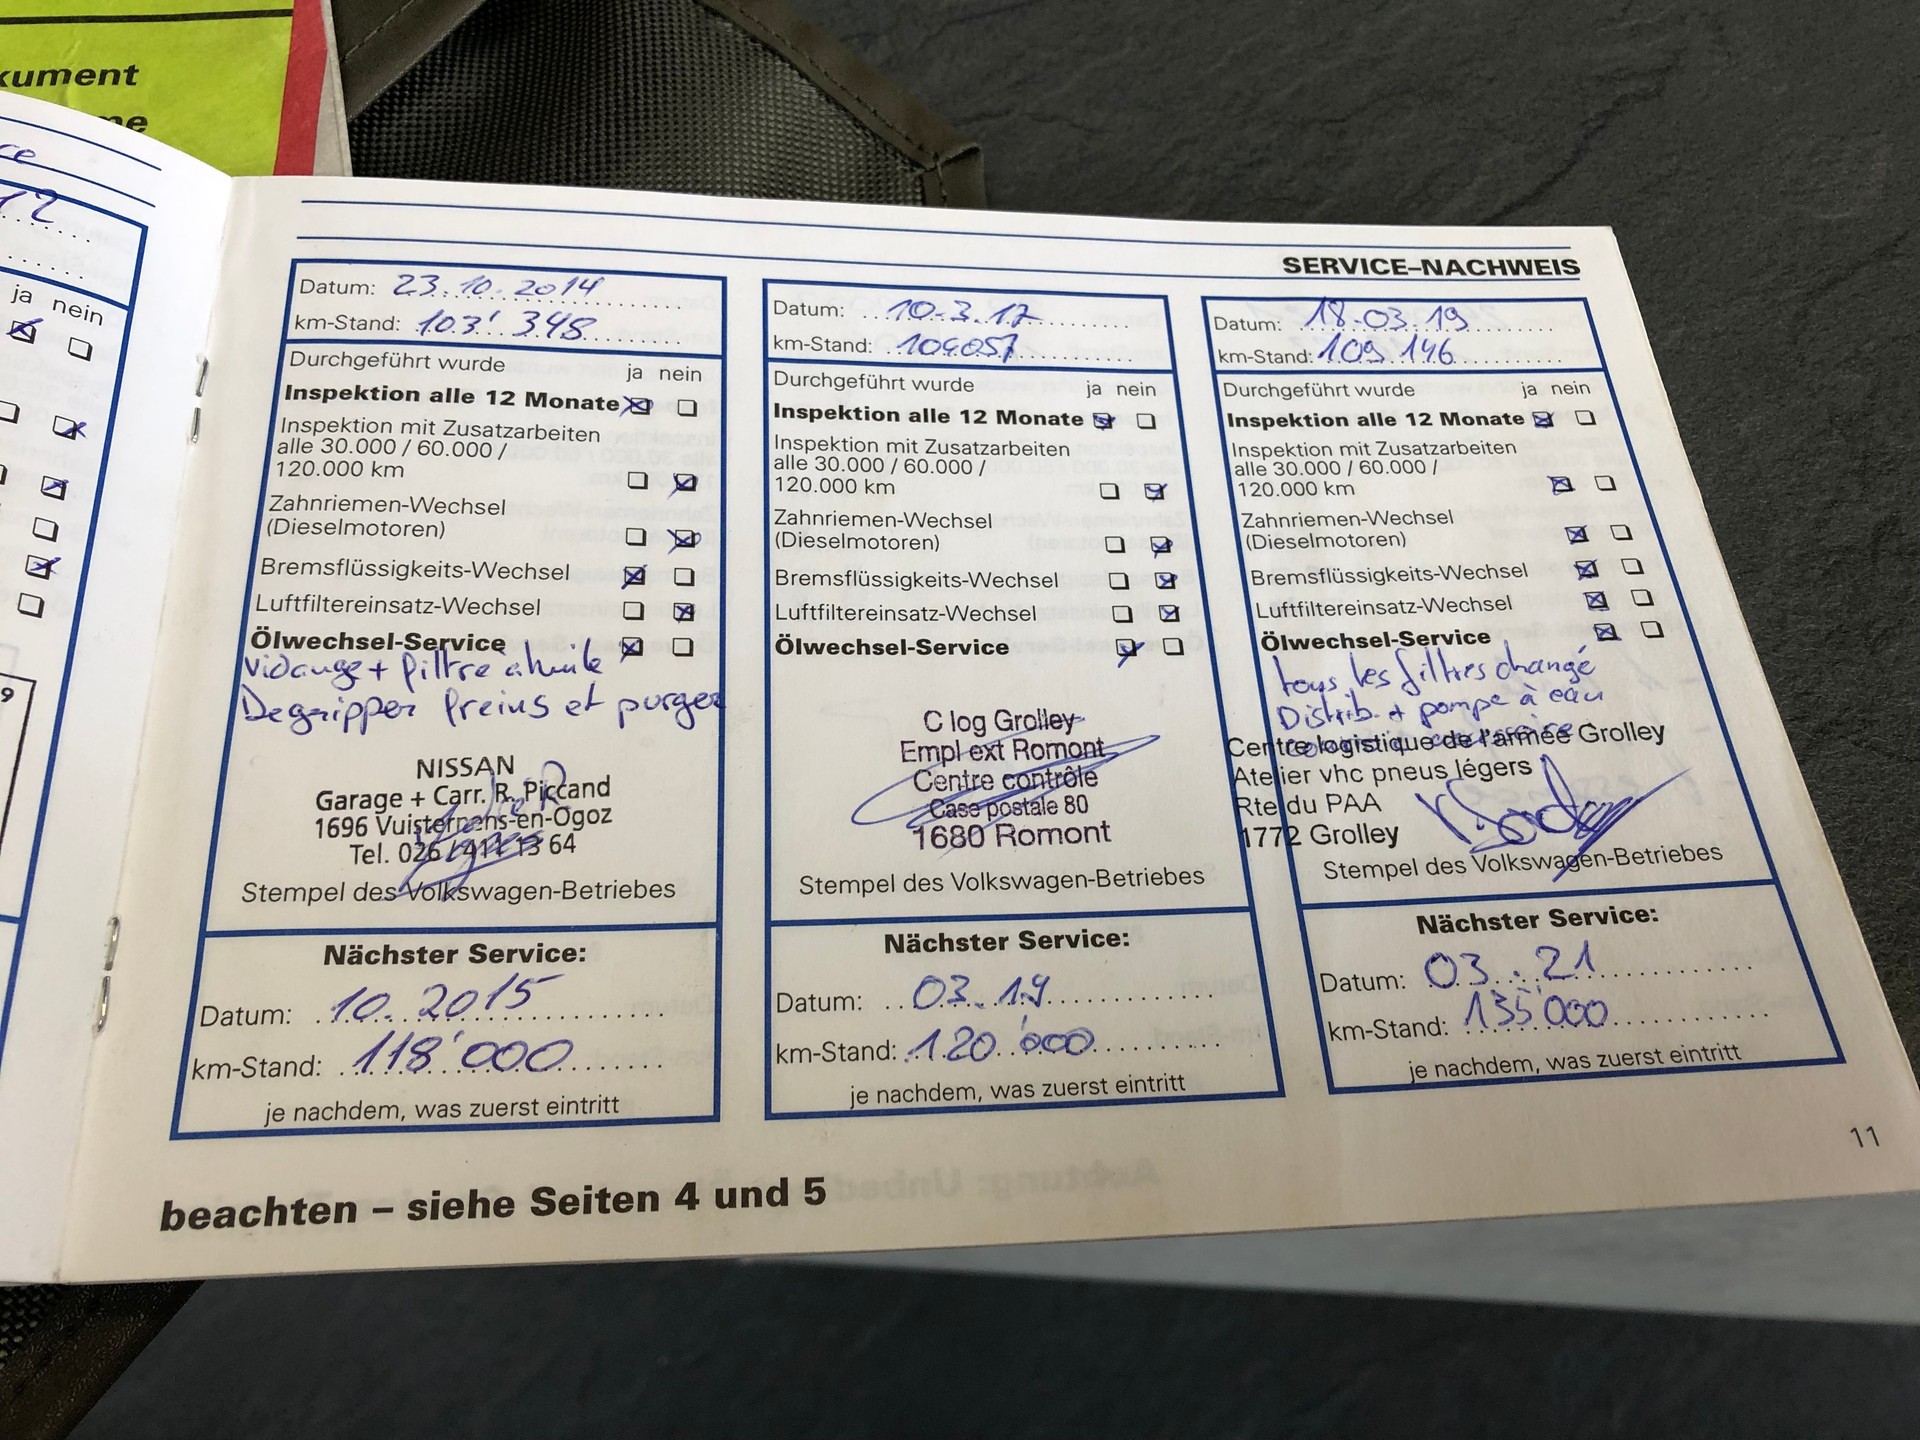 kument
ce
12
ja nein
9
SERVICE–NACHWEIS
Datum: 23.10.2014
km-Stand: 103' 348
Durchgeführt wurde
ja nein
Inspektion alle 12 Monate
Inspektion mit Zusatzarbeiten
alle 30.000 / 60.000 /
120.000 km
Zahnriemen-Wechsel
(Dieselmotoren)
Bremsflüssigkeits-Wechsel
Luftfiltereinsatz-Wechsel
Ölwechsel-Service
Vidange + filtre a huile
Degripper freins et purger
NISSAN
Garage + Carr. R. Piccand
1696 Vuisternens-en-Ogoz
Tel. 026 / 411 13 64
Stempel des Volkswagen-Betriebes
Nächster Service:
Datum: 10. 2015
km-Stand: 118'000
je nachdem, was zuerst eintritt
Datum: 10.3.17
km-Stand: 104057
Durchgeführt wurde
ja nein
Inspektion alle 12 Monate
Inspektion mit Zusatzarbeiten
alle 30.000 / 60.000 /
120.000 km
Zahnriemen-Wechsel
(Dieselmotoren)
Bremsflüssigkeits-Wechsel
Luftfiltereinsatz-Wechsel
Ölwechsel-Service
C log Grolley
Empl ext Romont
Centre contrôle
Case postale 80
1680 Romont
Stempel des Volkswagen-Betriebes
Nächster Service:
Datum: 03.19
km-Stand: 120'000
je nachdem, was zuerst eintritt
Datum: 18.03.19
km-Stand: 109 146
Durchgeführt wurde
ja nein
Inspektion alle 12 Monate
Inspektion mit Zusatzarbeiten
alle 30.000 / 60.000 /
120.000 km
Zahnriemen-Wechsel
(Dieselmotoren)
Bremsflüssigkeits-Wechsel
Luftfiltereinsatz-Wechsel
Ölwechsel-Service
tous les filtres changé
Distrib. + pompe à eau
Centre logistique de l'armée Grolley
Atelier vhc pneus légers
Rte du PAA
1772 Grolley
Stempel des Volkswagen-Betriebes
Nächster Service:
Datum: 03.21
km-Stand: 135'000
je nachdem, was zuerst eintritt
11
beachten – siehe Seiten 4 und 5